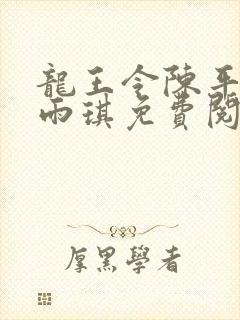 龍王令陳平
雨琪免費閱
厚黑學者